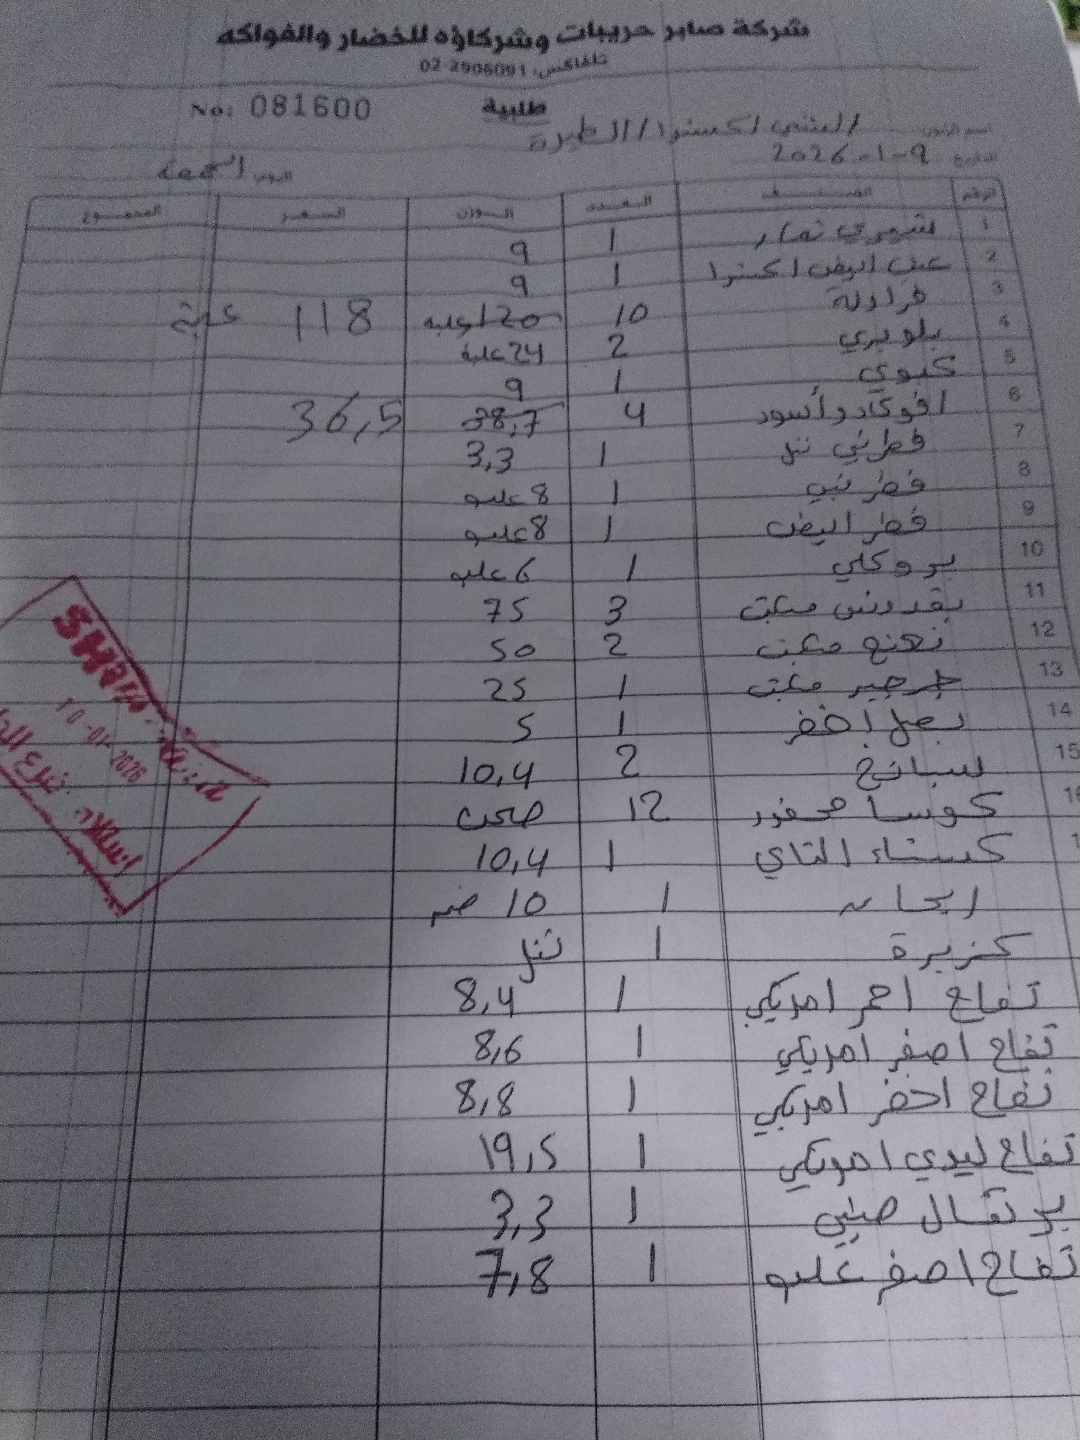 شركة صابر حريبات وشركاؤه للخضار والفواكه
تلفاكس: 02-2906091
No: 081600 طلبية
اكسترا / الطيرة
التاريخ 2026-1-9
اليوم الجمعة
الرقم الصنف العدد الوزن السعر المجموع
1 شمري تمار 1 9
2 عنب ابيض اكسترا 1 9
3 فراولة 10 120 علبه 118 علبة
4 بلوبيري 2 24 علبة
5 كيوي 1 9
6 افوكادو أسود 4 38,7 36,5
7 فطر بني تنل 1 3,3
8 فطر بني 1 8 علبه
9 فطر ابيض 1 8 علبه
10 بروكلي 1 6 علبه
11 بقدونس مكتب 3 75
12 نعنع مكتب 2 50
13 جرجير مكتب 1 25
14 بصل اخضر 1 5
15 سبانخ 2 10,4
16 كوسا محفور 12 صحن
كستناء 1 10,4
1 10
كزبرة 1 تنل
تفاح احمر امريكي 1 8,4
تفاح اصفر امريكي 1 8,6
تفاح اخضر امريكي 1 8,8
تفاح ليدي امريكي 1 19,5
برتقال صيني 1 3,3
تفاح اصفر 1 7,8
10-01-2026